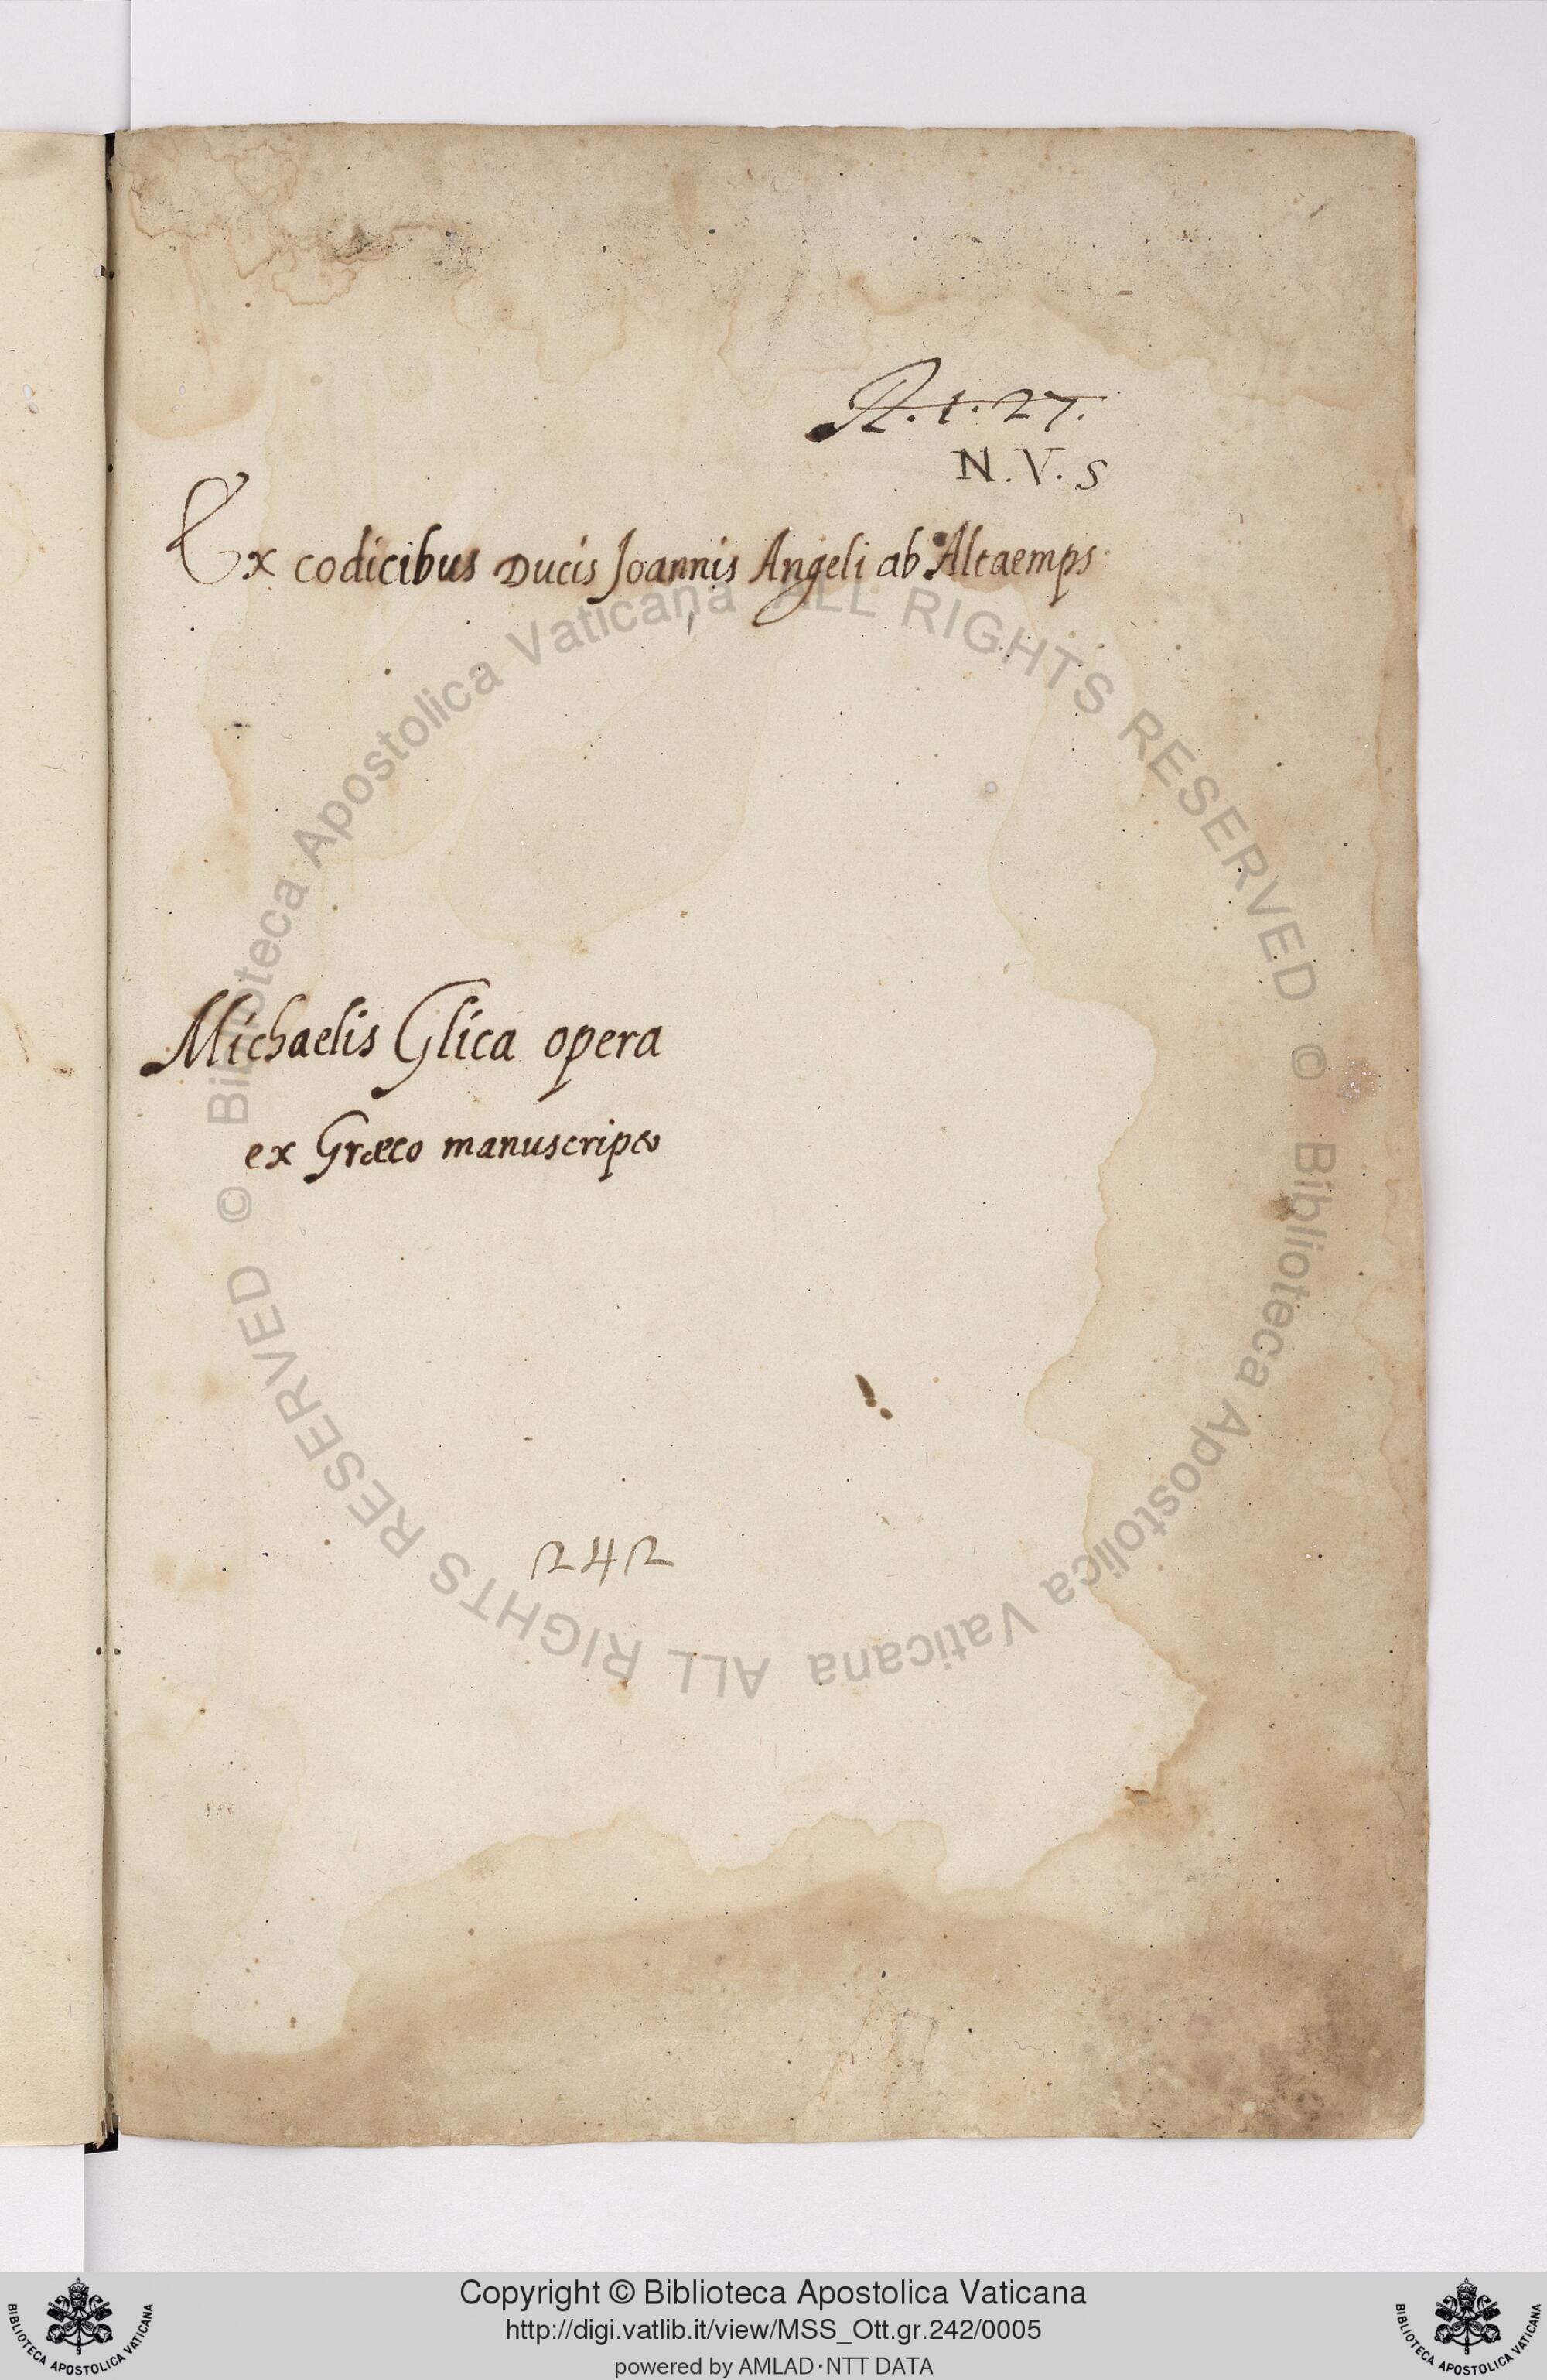 R. 1. 27.
N. V. S
Ex codicibus Ducis Joannis Angeli ab Altaemps
Michaelis Glica opera
ex Græco manuscripto
242
© Biblioteca Apostolica Vaticana ALL RIGHTS RESERVED
© Biblioteca Apostolica Vaticana ALL RIGHTS RESERVED
Copyright © Biblioteca Apostolica Vaticana
http://digi.vatlib.it/view/MSS_Ott.gr.242/0005
powered by AMLAD·NTT DATA
BIBLIOTECA APOSTOLICA VATICANA
BIBLIOTECA APOSTOLICA VATICANA